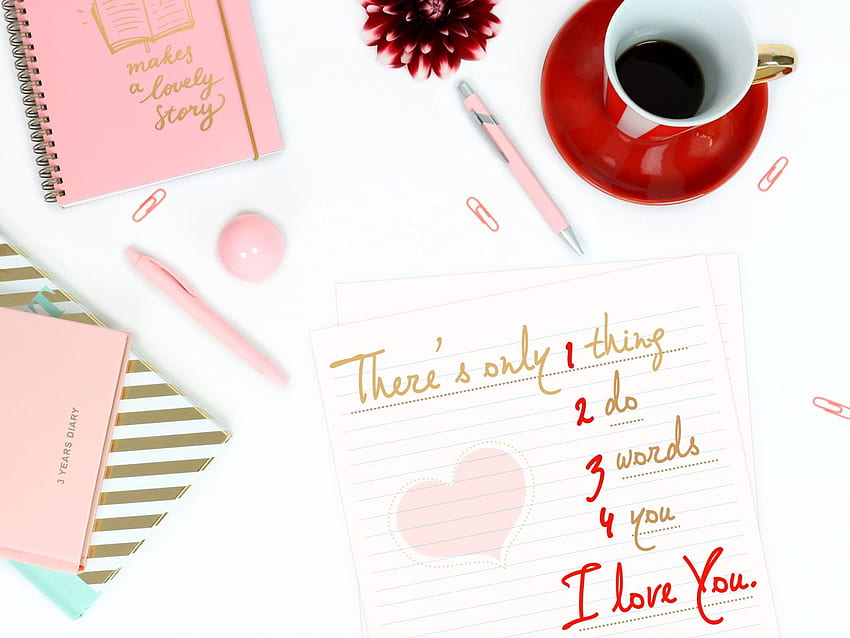 makes
a lovely
story
There's only 1 thing
2 do
3 words
4 you
I love You.
3 YEARS DIARY